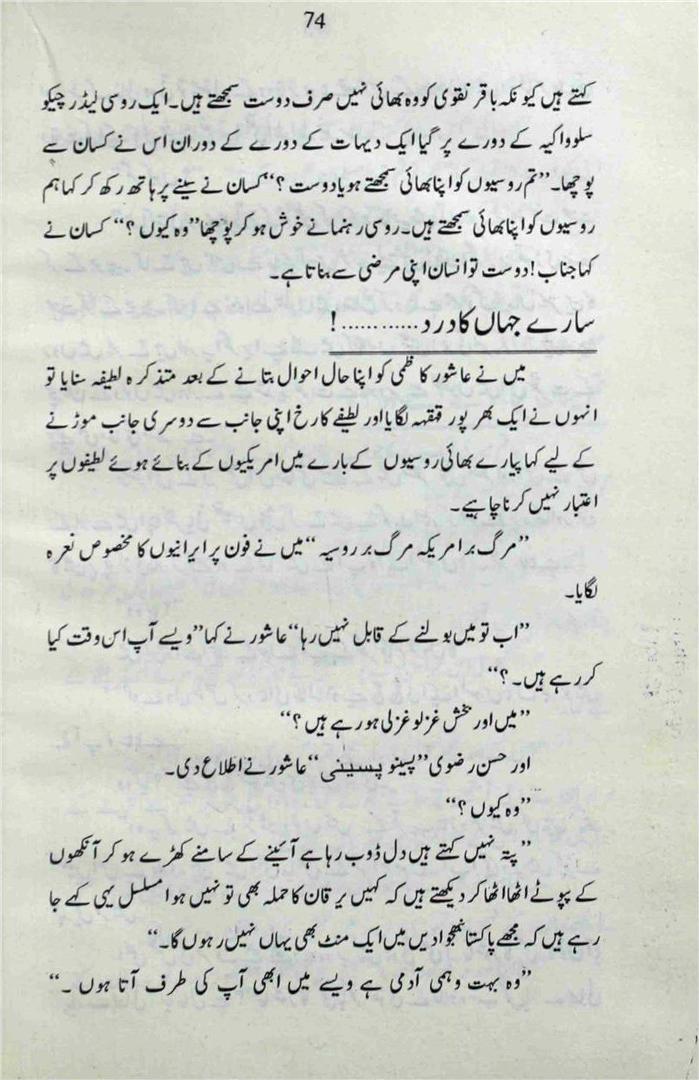 74
کہتے ہیں کیونکہ باقر نقوی کو وہ بھائی نہیں صرف دوست سمجھتے ہیں۔ ایک روسی لیڈر چیکو
سلوواکیہ کے دورے پر گیا ایک دیہات کے دورے کے دوران اس نے کسان سے
پوچھا۔ ”تم روسیوں کو اپنا بھائی سمجھتے ہو یا دوست ؟“ کسان نے سینے پر ہاتھ رکھ کر کہا ہم
روسیوں کو اپنا بھائی سمجھتے ہیں۔ روسی رہنما نے خوش ہو کر پوچھا ”وہ کیوں ؟“ کسان نے
کہا جناب ! دوست تو انسان اپنی مرضی سے بناتا ہے۔
سارے جہاں کا درد ............!
میں نے عاشور کاظمی کو اپنا حال احوال بتانے کے بعد متذکرہ لطیفہ سنایا تو
انہوں نے ایک بھر پور قہقہہ لگایا اور لطیفے کا رخ اپنی جانب سے دوسری جانب موڑنے
کے لیے کہا پیارے بھائی روسیوں کے بارے میں امریکیوں کے بنائے ہوئے لطیفوں پر
اعتبار نہیں کرنا چاہیے۔
”مرگ بر امریکہ مرگ بر روسیہ“ میں نے فون پر ایرانیوں کا مخصوص نعرہ
لگایا۔
”اب تو میں بولنے کے قابل نہیں رہا“ عاشور نے کہا ”ویسے آپ اس وقت کیا
کر رہے ہیں۔؟“
”میں اور بخش غزلو غزلی ہو رہے ہیں ؟“
اور حسن رضوی ”پسینو پسینی“ عاشور نے اطلاع دی۔
”وہ کیوں ؟“
”پتہ نہیں کہتے ہیں دل ڈوب رہا ہے آئینے کے سامنے کھڑے ہو کر آنکھوں
کے پپوٹے اٹھا اٹھا کر دیکھتے ہیں کہ کہیں یرقان کا حملہ بھی تو نہیں ہوا مسلسل یہی کہے جا
رہے ہیں کہ مجھے پاکستان بھجوا دیں میں ایک منٹ بھی یہاں نہیں رہوں گا۔“
”وہ بہت وہمی آدمی ہے ویسے میں ابھی آپ کی طرف آتا ہوں ۔“